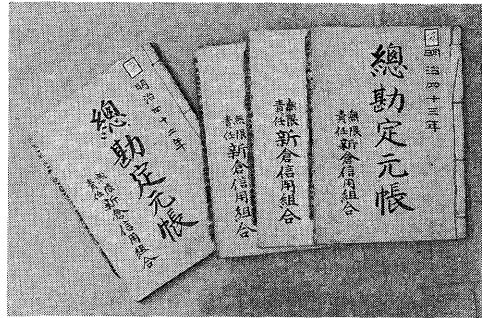 明治四十三年
總勘定元帳
無限
責任
新倉信用組合
無限
責任
新倉信用組合
無限
責任
新倉信用組合
明治四十二年
總勘定元帳
無限
責任
新倉信用組合